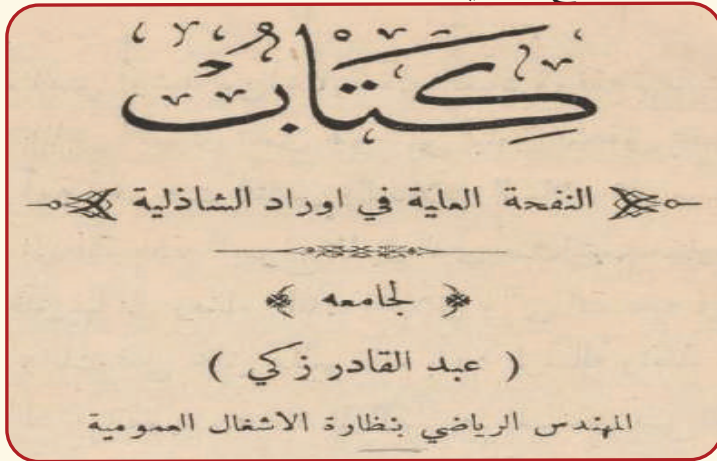 كتاب
النفحة العلية في اوراد الشاذلية
لجامعه
( عبد القادر زكي )
المهندس الرياضي بنظارة الاشغال العمومية